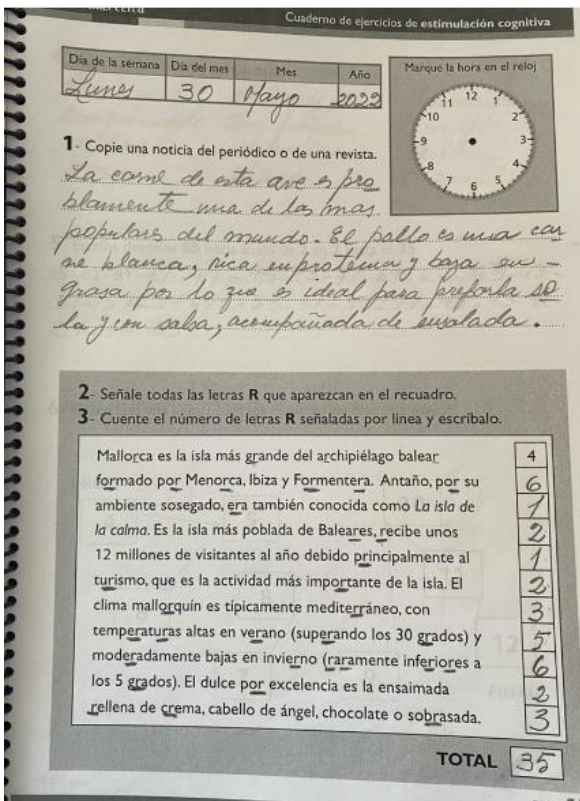 Cuaderno de ejercicios de estimulación cognitiva
Día de la semana Día del mes Mes Año
Lunes 30 Mayo 2022
Marque la hora en el reloj
12
11 1
10 2
9 3
8 4
7 5
6
1- Copie una noticia del periódico o de una revista.
La carne de esta ave es pro
blamente una de las mas
populares del mundo. El pollo es una car
ne blanca, rica en proteina y baja en -
grasa por lo que es ideal para preparla so
la y con salsa, acompañada de ensalada.
2- Señale todas las letras R que aparezcan en el recuadro.
3- Cuente el número de letras R señaladas por línea y escríbalo.
Mallorca es la isla más grande del archipiélago balear 4
formado por Menorca, Ibiza y Formentera. Antaño, por su 6
ambiente sosegado, era también conocida como La isla de 1
la calma. Es la isla más poblada de Baleares, recibe unos 2
12 millones de visitantes al año debido principalmente al 1
turismo, que es la actividad más importante de la isla. El 2
clima mallorquín es típicamente mediterráneo, con 3
temperaturas altas en verano (superando los 30 grados) y 5
moderadamente bajas en invierno (raramente inferiores a 6
los 5 grados). El dulce por excelencia es la ensaimada 2
rellena de crema, cabello de ángel, chocolate o sobrasada. 3
TOTAL 35